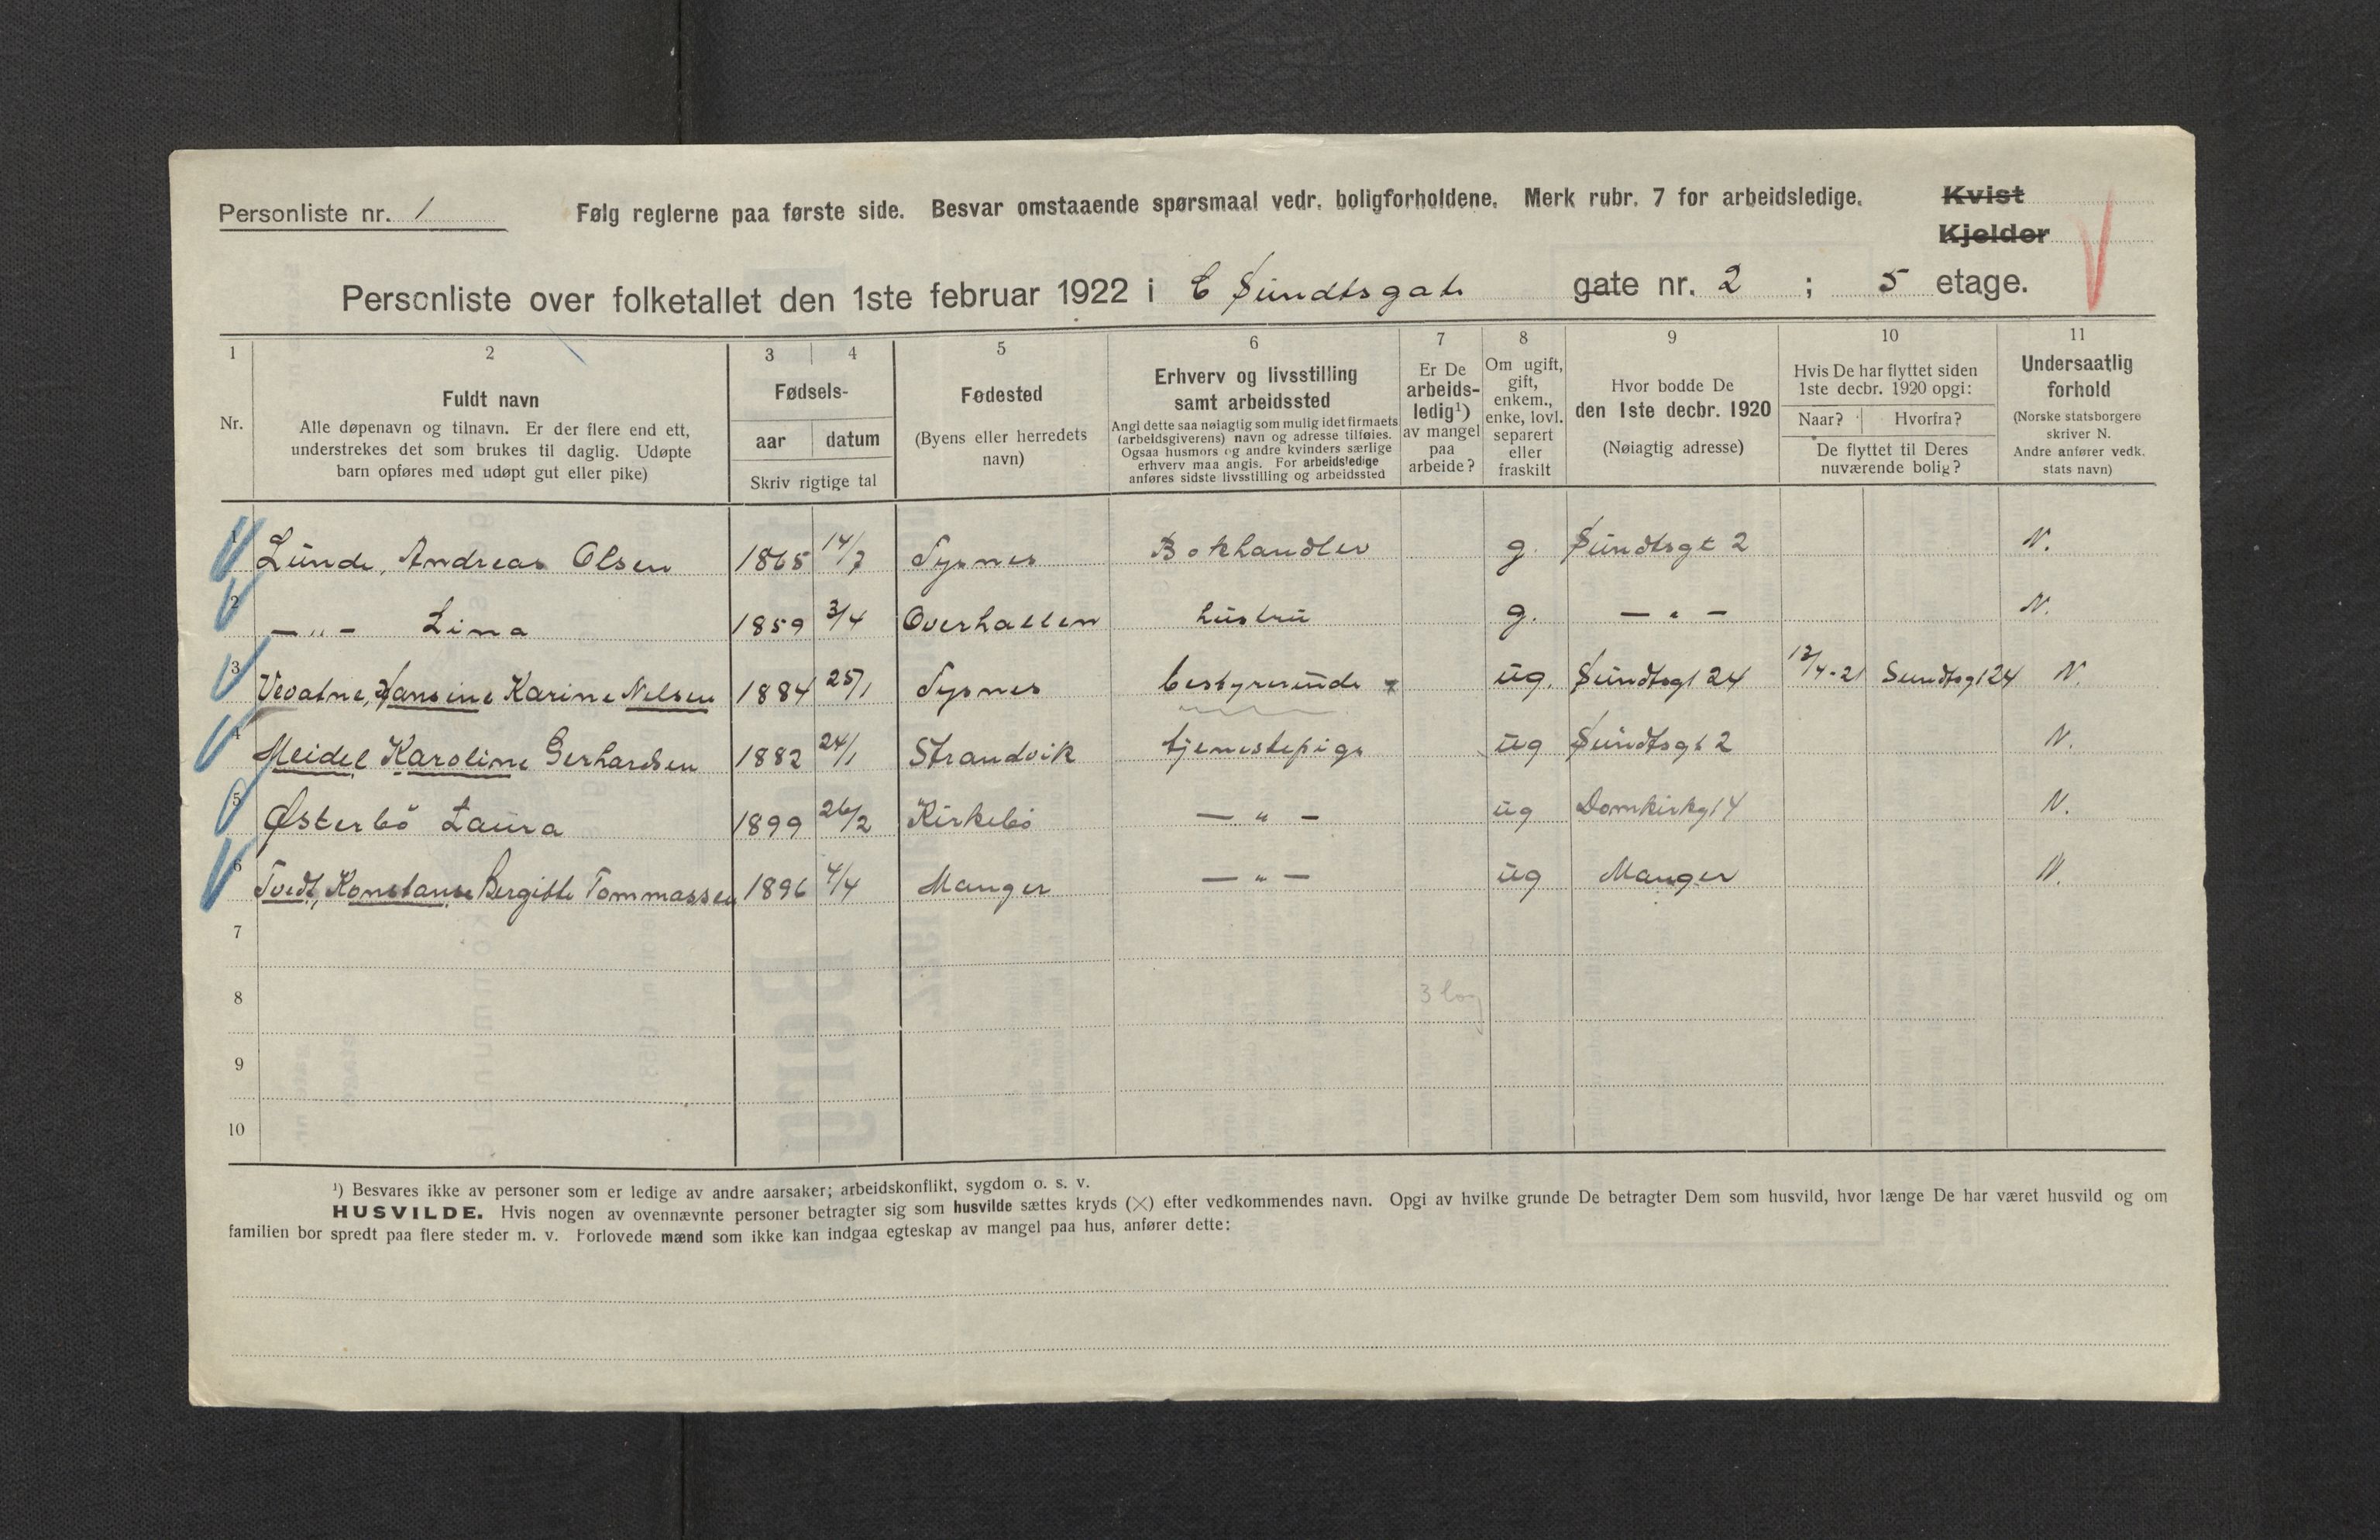 Personliste nr. 1
Følg reglerne paa første side. Besvar omstaaende spørsmaal vedr. boligforholdene. Merk rubr. 7 for arbeidsledige.
Kvist
Kjelder
Personliste over folketallet den 1ste februar 1922 i C Sundtsgate gate nr. 2 ; 5 etage.
1 2 3 4 5 6 7 8 9 10 11
Nr.
Fuldt navn
Alle døpenavn og tilnavn. Er der flere end ett,
understrekes det som brukes til daglig. Udøpte
barn opføres med udøpt gut eller pike)
Fødsels-
aar datum
Skriv rigtige tal
Fødested
(Byens eller herredets
navn)
Erhverv og livsstilling
samt arbeidssted
Angi dette saa nøiagtig som mulig idet firmaets
(arbeidsgiverens) navn og adresse tilføies.
Ogsaa husmors og andre kvinders særlige
erhverv maa angis. For arbeidsledige
anføres sidste livsstilling og arbeidssted
Er De
arbeids-
ledig¹)
av mangel
paa
arbeide?
Om ugift,
gift,
enkem.,
enke, lovl.
separert
eller
fraskilt
Hvor bodde De
den 1ste decbr. 1920
(Nøiagtig adresse)
Hvis De har flyttet siden
1ste decbr. 1920 opgi:
Naar? Hvorfra?
De flyttet til Deres
nuværende bolig?
Undersaatlig
forhold
(Norske statsborgere
skriver N.
Andre anfører vedk.
stats navn)
1 Lunde, Andreas Olsen 1865 14/7 Tysnes Bokhandler g. Sundtsgt 2 N.
2 — „ — Lina 1859 3/4 Overhallen hustru g. — „ — N.
3 Vevatne, Hansine Karine Nilsen 1884 25/1 Tysnes bestyrerinde ug. Sundtsgt 24 12/4-21 Sundtsgt 24 N.
4 Meidel Karoline Gerhardsen 1882 24/1 Strandvik tjenestepige ug Sundtsgt 2 N.
5 Østerbö Laura 1899 26/2 Kirkebö — „ — ug Domkirkegt 4 N.
6 Tvedt, Konstanse Bergitte Tommassen 1896 4/4 Manger — „ — ug Manger N.
7
8
9
10
¹) Besvares ikke av personer som er ledige av andre aarsaker; arbeidskonflikt, sygdom o. s. v.
HUSVILDE. Hvis nogen av ovennævnte personer betragter sig som husvilde sættes kryds (×) efter vedkommendes navn. Opgi av hvilke grunde De betragter Dem som husvild, hvor længe De har været husvild og om
familien bor spredt paa flere steder m. v. Forlovede mænd som ikke kan indgaa egteskap av mangel paa hus, anfører dette: